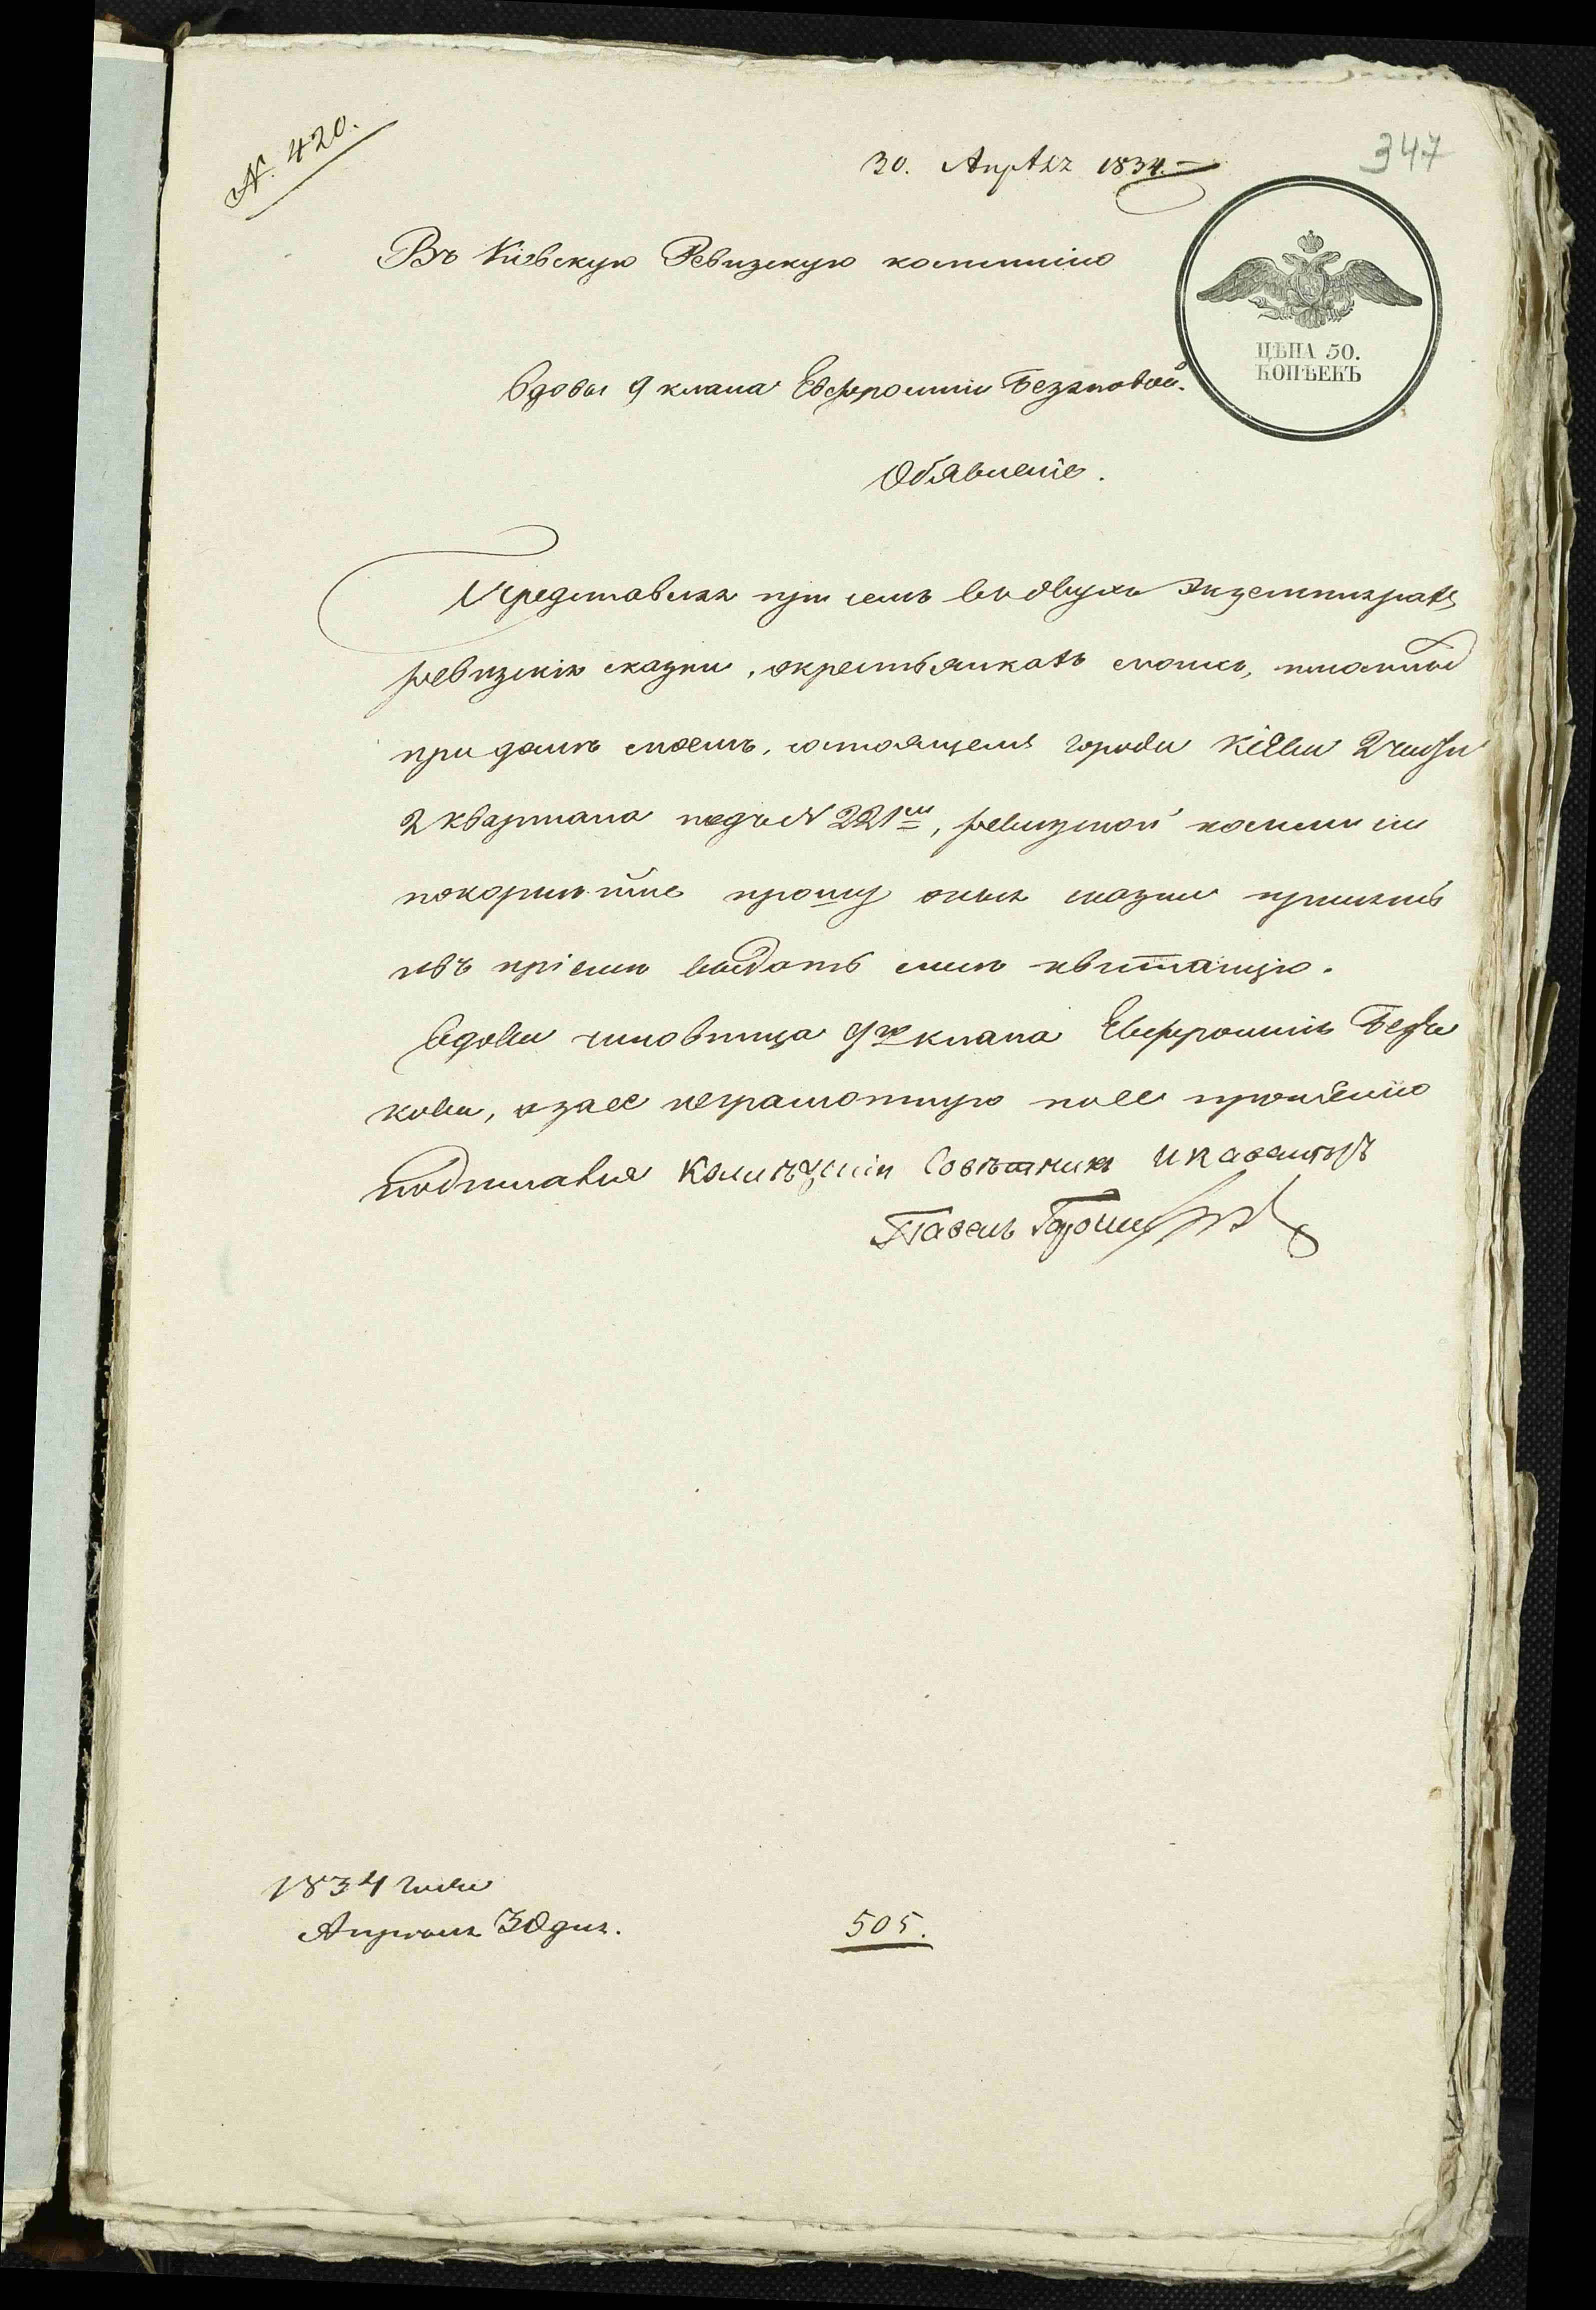 №. 420.
30. Апрѣля 1834.
347
Въ Кіевскую Ревизскую комисію
ЦѢНА 50.
КОПѢЕКЪ
Вдовы 9 класа Евфросиніи Безяковой.
Обявленіе.
Представляя при семъ въ двухъ экземплярахъ
ревизскія сказки, о крестьянкахъ моихъ,
при домѣ моемъ, состоящемъ города Кіева 2 части
2 квартала подъ № 221м, ревизской комисіи
покорнѣйше прошу оныя сказки принять
и въ пріемѣ выдать мнѣ квитанцію.
Вдова чиновница 9го класа Евфросинія Безя
кова, а за ее неграмотную по ее прошенію
подписался Колежскій Совѣтникъ и кавалеръ
Павелъ
1834 года
Апрѣля 30 дня.
505.